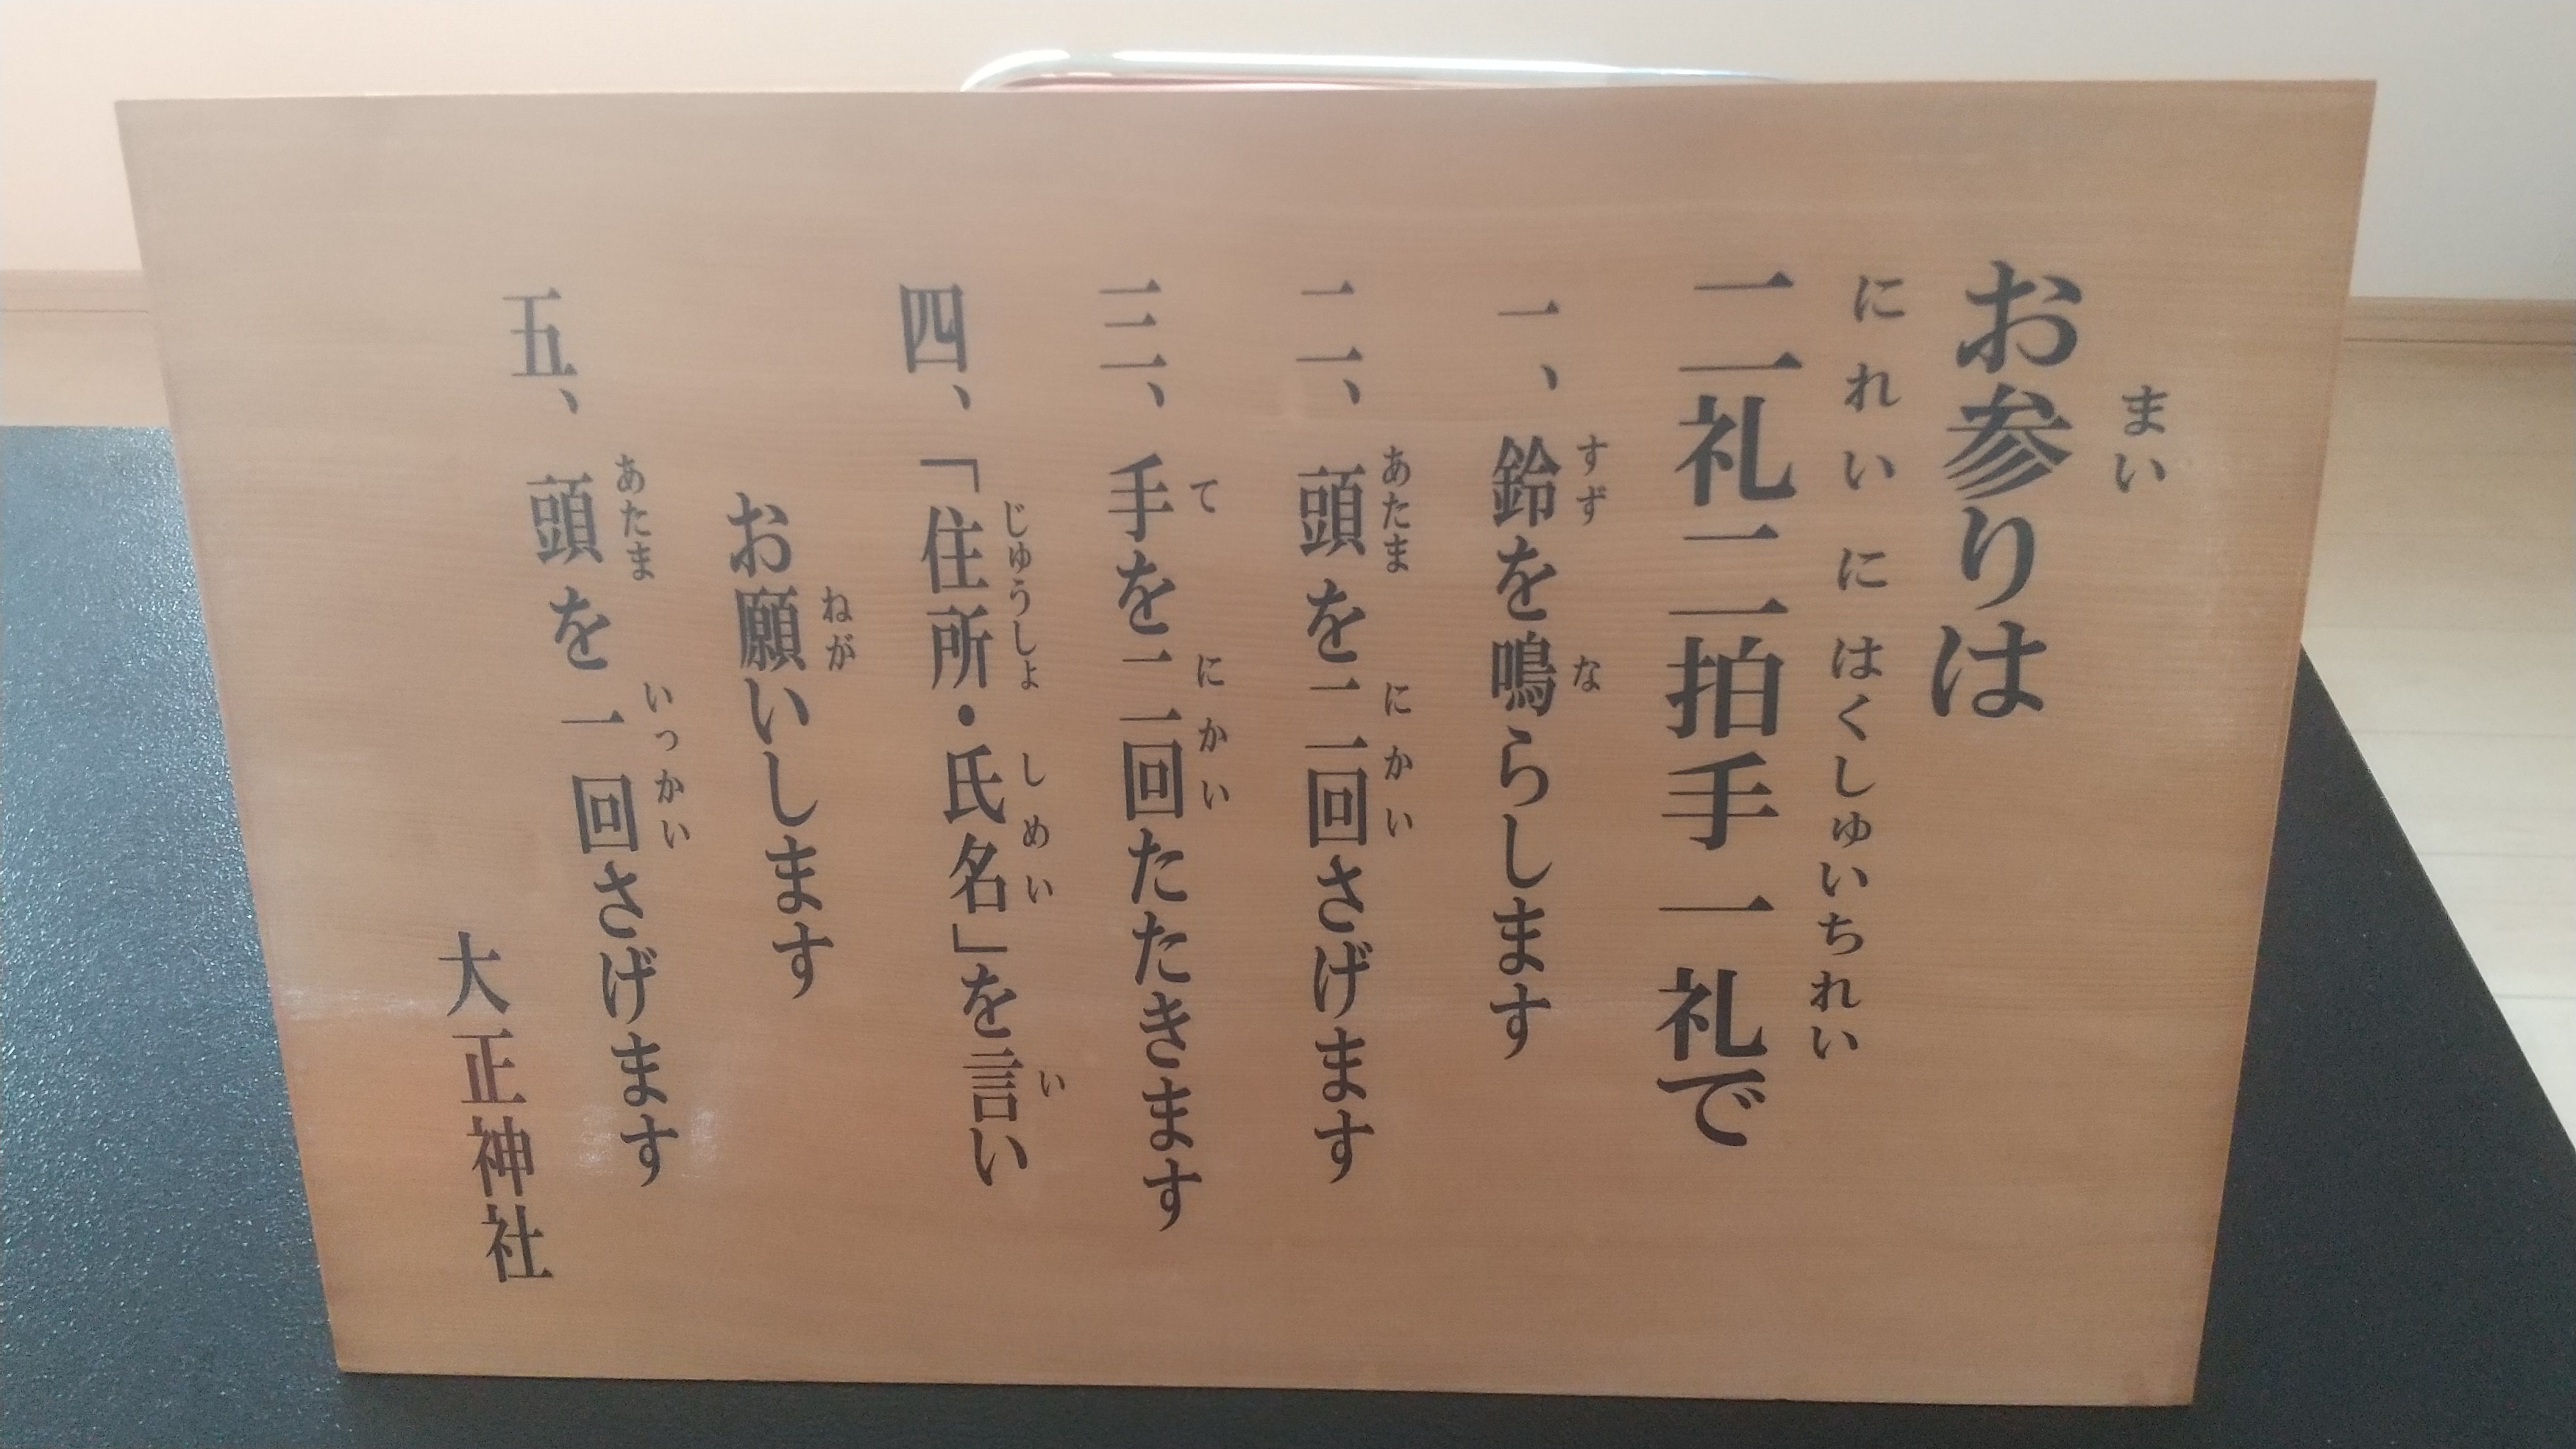 お参りは
まい
二礼二拍手一礼で
にれいにはくしゅいちれい
一、鈴を鳴らします
すず な
二、頭を二回さげます
あたま にかい
三、手を二回たたきます
て にかい
四、「住所・氏名」を言い
じゅうしょ しめい い
お願いします
ねが
五、頭を一回さげます
あたま いっかい
大正神社